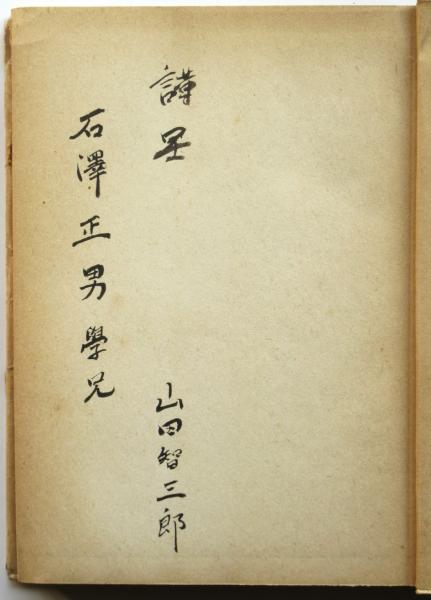 謹呈
山田智三郎
石澤正男學兄